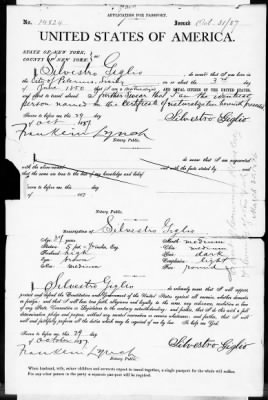 APPLICATION FOR PASSPORT.
No. 14824. Issued Oct. 31/87
UNITED STATES OF AMERICA.
STATE OF NEW YORK,
COUNTY OF NEW YORK,
I, Silvestro Giglio, do swear that I was born in
the City of Palermo, Sicily on or about the 3rd day
of June 1850; that I am a Naturalized AND LOYAL CITIZEN OF THE UNITED STATES,
and about to travel abroad. I further swear that I am the identical
person named in the certificate of naturalization herewith presented
Sworn to before me, this 29 day
of Oct 1887
Silvestro Giglio
Franklin Lynch
Notary Public.
that I am acquainted
with the above named and with the facts stated by
Sworn to before me, this day
of 187
Notary Public.
Description of Silvestro Giglio
Age: 37 years
Stature: 5 feet inches, Eng.
Forehead: high
Eyes:
Nose: medium
Mouth: medium
Chin: medium
Hair: dark
Complexion: light
Face: round
I, Silvestro Giglio do solemnly swear that I will support,
protect and defend the Constitution and Government of the United States against all enemies, whether domestic
or foreign; and that I will bear true faith, allegiance and loyalty to the same, any ordinance, resolution or law
of any State Convention or Legislature to the contrary notwithstanding; and further, that I do this with a full
determination, pledge and purpose, without any mental reservation or evasion whatsoever; and further, that I will
well and faithfully perform all the duties which may be required of me by law. So help me God.
Sworn to before me this 29
day of October 1887
Silvestro Giglio
Franklin Lynch
Notary Public.
When husband, wife, minor children and servants expect to travel together, a single passport for the whole will suffice.
For any other person in the party a separate passport will be required.